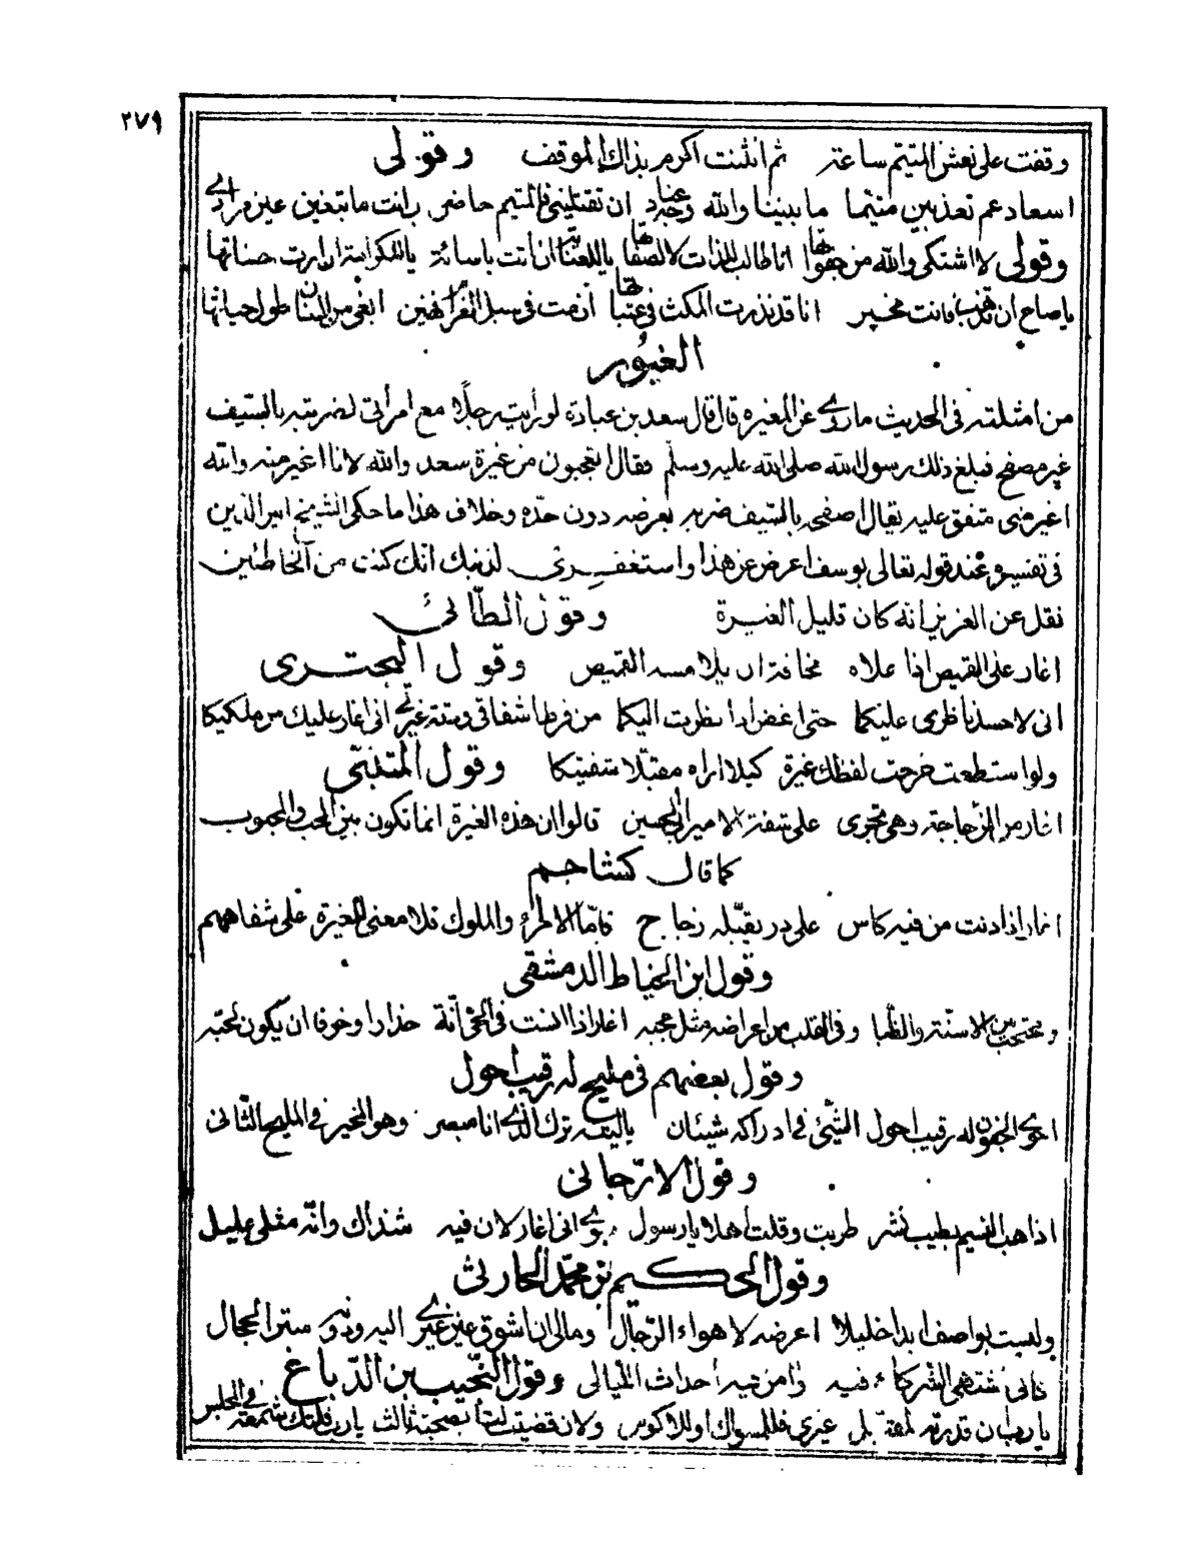 ٢٧٩
وقفت على نعش المتيم ساعة ثم انثنت اكرم بذاك الموقف وقولى
اسعاد عم تعذبين متيما ما بيننا والله وجه عناد ان تقتلينى فالمتيم حاضر بل انت ما تبغين غير مرادى
وقولى لا اشتكى والله من جفواتها انا طالب للذات لا لصفاتها
يا صاح ان فانت مخير انا قد نذرت المكث فى عتباتها ان مت فى سبل الغرام ابغى من طول حياتها
الغيور
من امثلته فى الحديث ما روى عن المغيرة قال قال سعد بن عبادة لو رأيت رجلًا مع امرأتى لضربته بالسيف
غير مصفح فبلغ ذلك رسول الله صلى الله عليه وسلم فقال اتعجبون من غيرة سعد والله لانا اغير منه والله
اغير منى متفق عليه يقال اصفحه بالسيف ضربه بعرضه دون حدّه وخلاف هذا ما حكى الشيخ اثير الدين
فى تفسيره عند قوله تعالى يوسف اعرض عن هذا واستغفرى لذنبك انك كنت من الخاطئين
نقل عن العزيز انه كان قليل الغيرة وقول الطّائى
اغار على القميص اذا علاه مخافة ان يلامسه القميص وقول البحترى
انى لاحسد ناظرى عليكما حتى اغض اذا نظرت اليكما من فرط اشفاقى ورقة غيرتى انى اغار عليك من ملكيكا
ولو استطعت جرحت لفظك غيرة كيلا اراه مقبّلا شفتيكا وقول المتنبّى
اغار من الزجاجة وهى تجرى على شفة الامير ابى الحسين قالوا ان هذه الغيرة انما تكون بين المحب والمحبوب
كما قال كشاجم
اغار اذا دنت من فيه كاس على درّ يقبّله زجاج فامّا الامراء والملوك فلا معنى للغيرة على شفاههم
وقول ابن الخياط الدمشقى
ومحتجب بين الاسنّة والظبا وفى القلب من اعراضه مثل حجبه اغار اذا آنست فى الحىّ انّة حذارا وخوفا ان يكون لحبّه
وقول بعضهم فى مليح له رقيب احول
احوى الجفون له رقيب احول الشيئ فى ادراكه شيئان يا ليته ترك الذى انا مبصر وهو المخير فى المليح الثّانى
وقول الارّجانى
اذا هب النسيم بطيب نشر طربت وقلت اهلا يا رسول سوى انى اغار لان فيه شذاك وانّه مثلى عليل
وقول الحكيم بن محمّد الحارثى
ولست بواصف ابدا خليلا اعرضه لاهواء الرّجال ومالى ان اشوق عين غيرى اليه ودونه ستر الحجال
كانى نشتهى الشركاء فيه وآمن فيه احداث اللّيالى وقول النّجيب بن الدّباغ
يا رب ان قدرته لمقبّل غيرى فللمسواك او للاكوس ولئن قضيت لنا بصحبة ثالث يا رب فلتك شمعة فى المجلس